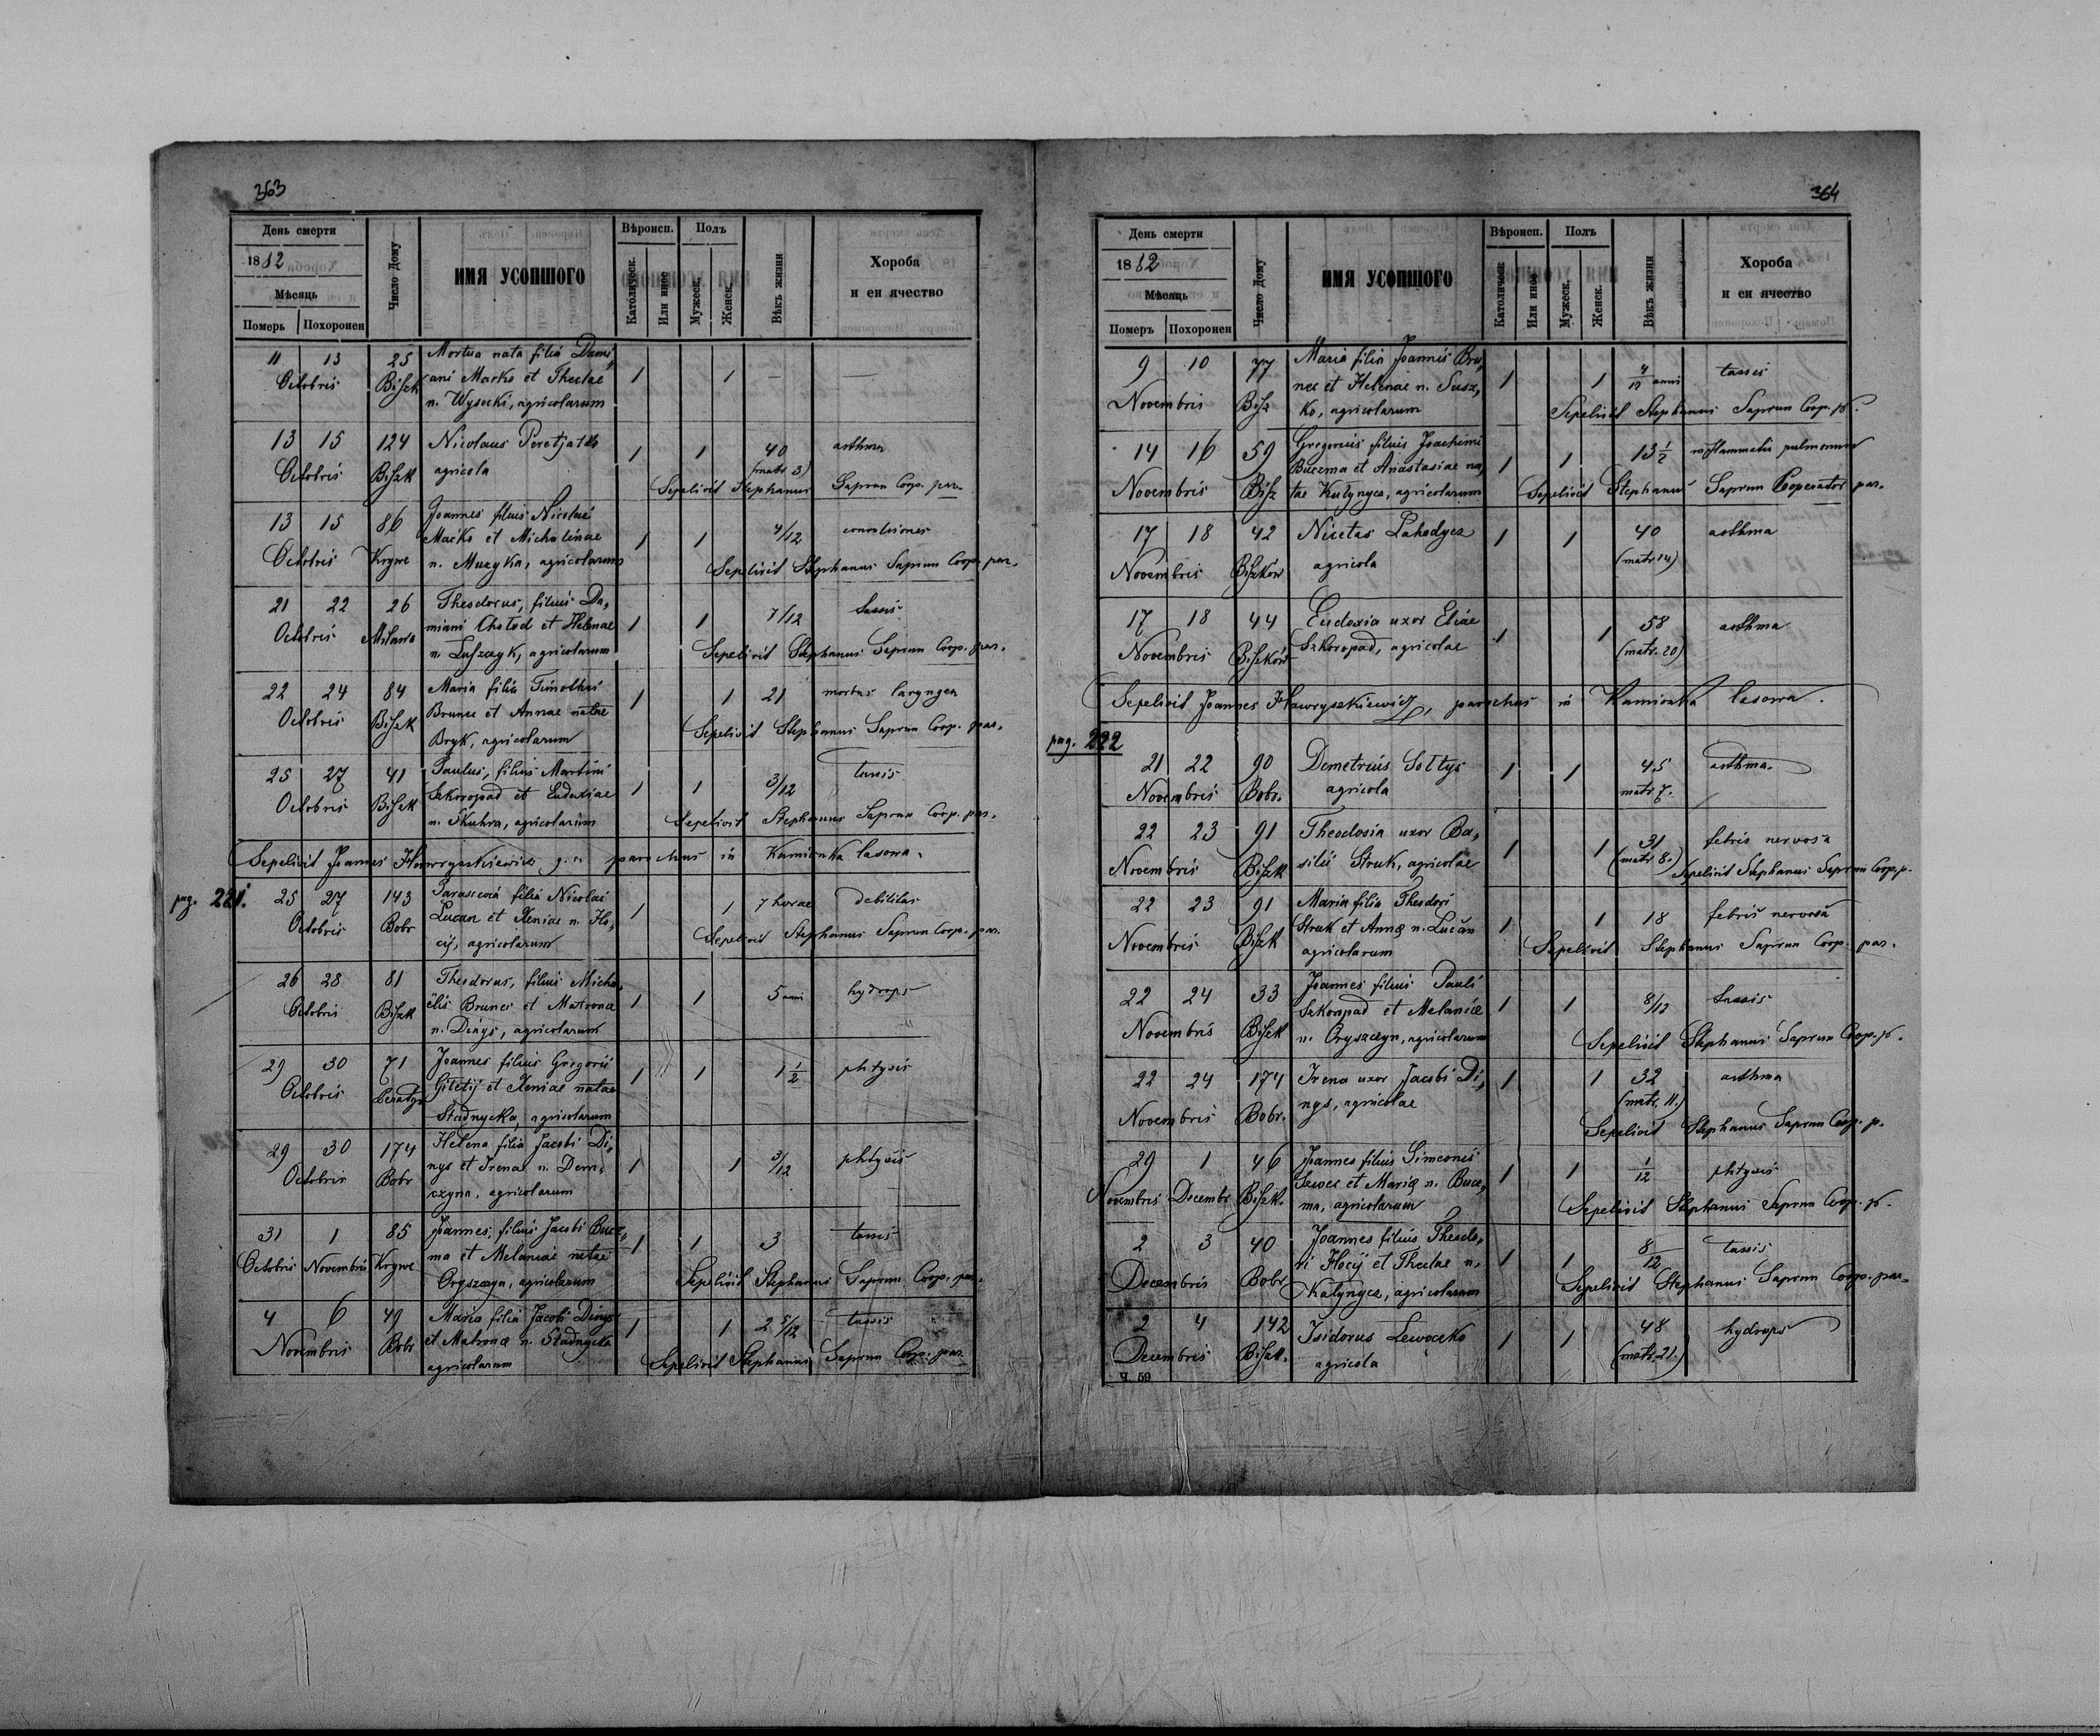 363
День смерти
1882
Мѣсяць
Померъ Похоронен
Число Дому
ИМЯ УСОПШОГО
Вѣроисп.
Католическ.
Или иное
Полъ
Мужеск.
Женск.
Вѣкъ жизни
Хороба
и еи ячество
11 13 25 Mortua nata filia Dami„
Octobris Biszk ani Marko et Theclae 1 1 — —
n. Wysocki, agricolarum
13 15 124 Nicolaus Peretjatko 1 1 40 asthma
Octobris Biszk agricola (matr 3)
Sepelivit Stephanus Saprun Coop. par.
13 15 86 Joannes filius Nicolai
Maćko et Michalinae 1 1 4/12 convulsiones
Octobris Krywe n. Muzyka, agricolarum
Sepelivit Stephanus Saprun Coop. par.
21 22 26 Theodorus, filius Da„
Octobris miani Chołod et Helenae 1 1 7/12 tussis
n. Luszczyk, agricolarum
Sepelivit Stephanus Saprun Coop. par.
22 24 84 Maria filia Timothei 1 1 21 morbus laryngea
Octobris Biszk Brunec et Annae natae
Bryk, agricolarum
Sepelivit Stephanus Saprun Coop. par.
25 27 41 Paulus, filius Martini
Octobris Biszk Szkoropad et Eudoxiae 1 1 3/12 tussis
n. Skuhra, agricolarum
Sepelivit Stephanus Saprun Coop. par.
Sepelivit Joannes Hawryszkiewicz parochus in Kamionka lasowa.
pag. 221.
25 27 143 Parascevia filia Nicolai
Octobris Bobr Lucan et Xeniae n. Ho„ 1 1 7 horae debilitas
cij, agricolarum
Sepelivit Stephanus Saprun Coop. par.
26 28 81 Theodorus, filius Micha„
Octobris Biszk elis Brunec et Matronae 1 1 5 anni hydrops
n. Dinys, agricolarum
29 30 71 Joannes filius Gregorii
Octobris et Xeniae natae 1 1 1 1/2 phtysis
Stadnycka, agricolarum
29 30 174 Helena filia Jacobi Di„
Octobris Bobr nys et Irenae n. Dem„ 1 1 3/12 phtysis
czyna, agricolarum
31 1 85 Joannes, filius Jacobi Buce„
Octobris Novembris Krywe ma et Melaniae natae 1 1 3 tussis
Oryszczyn, agricolarum
Sepelivit Stephanus Saprun Coop. par.
4 6 49 Maria filia Jacobi Dinys
Novembris Bobr et Matronae n. Stadnycka 1 1 2 5/12 tussis
agricolarum
Sepelivit Stephanus Saprun Coop. par.
364
День смерти
1882
Мѣсяць
Померъ Похоронен
Число Дому
ИМЯ УСОПШОГО
Вѣроисп.
Католическ
Или иное
Полъ
Мужеск.
Женск.
Вѣкъ жизни
Хороба
и еи ячество
9 10 77 Maria filia Joannis Bru„
Novembris Bisz nec et Helenae n. Susz„ 1 1 4/12 anni tussis
ko, agricolarum
Sepelivit Stephanus Saprun Coop. p.
14 16 59 Gregorius filius Joachimi
Novembris Bisz Bucema et Anastasiae na„ 1 1 13 1/2 inflammatio pulmonum
tae Kutynycz, agricolarum
Sepelivit Stephanus Saprun Cooperator par.
17 18 42 Nicetas Lahodycz 1 1 40 asthma
Novembris Biszków agricola (matr 14)
17 18 44 Eudoxia uxor Eliae 1 1 58 asthma
Novembris Biszków Szkoropad, agricolae (matr. 20)
Sepelivit Joannes Hawryszkiewicz, parochus in Kamionka lasowa.
pag. 222
21 22 90 Demetrius Sołtys 1 1 45 asthma.
Novembris Bobr. agricola matr 7.
22 23 91 Theodosia uxor Ba„ 1 1 31 febris nervosa
Novembris Biszk silii Struk, agricolae (matr 8.)
Sepelivit Stephanus Saprun Coop. p.
22 23 91 Maria filia Theodori
Novembris Biszk Struk et Annae n. Lučan 1 1 18 febris nervosa
agricolarum
Sepelivit Stephanus Saprun Coop. par.
22 24 33 Joannes filius Pauli
Novembris Biszk Szkoropad et Melaniae 1 1 8/12 tussis
n. Oryszczyn, agricolarum
Sepelivit Stephanus Saprun Coop. p.
22 24 174 Irena uxor Jacobi Di„ 1 1 32 asthma
Novembris Bobr. nys, agricolae (matr. 11.)
Sepelivit Stephanus Saprun Coop. p.
29 1 46 Joannes filius Simeonis
Novembris Decembr Biszk. Szwec et Mariae n. Buce„ 1 1 1/12 phtysis
ma, agricolarum
Sepelivit Stephanus Saprun Coop. p.
2 3 40 Joannes filius Theodo„
Decembris Bobr ri Hocij et Theclae n. 1 1 8/12 tussis
Kutynycz, agricolarum
Sepelivit Stephanus Saprun Coop. par.
2 4 142 Isidorus Lewoczko 1 1 48 hydrops
Decembris Biszk. agricola (matr. 21.)
Ч. 59